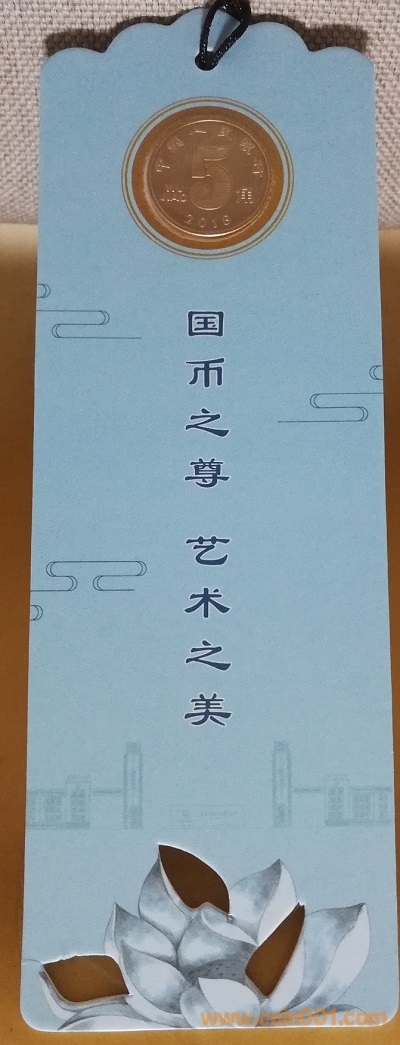 中国人民银行
5
WU
JIAO
角
2016
国币之尊 艺术之美
www.coin001.com